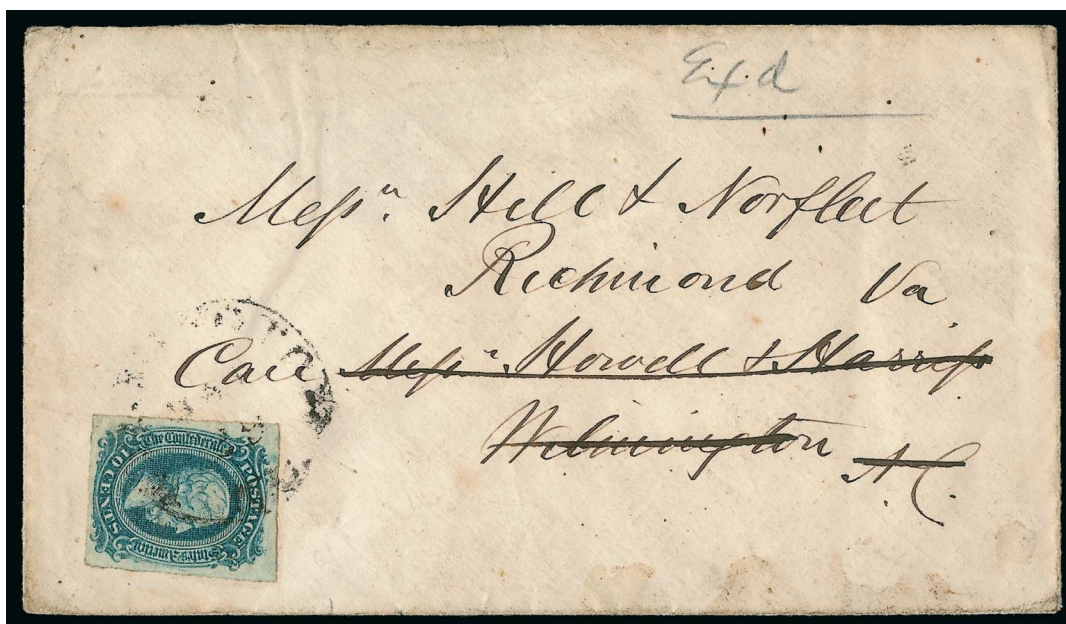 Ex d
Messrs. Hill & Norfleet
Richmond Va
Care Messrs. Howell & Harriss
Wilmington N.C.
The Confederate
States of America
POSTAGE
10 CENTS